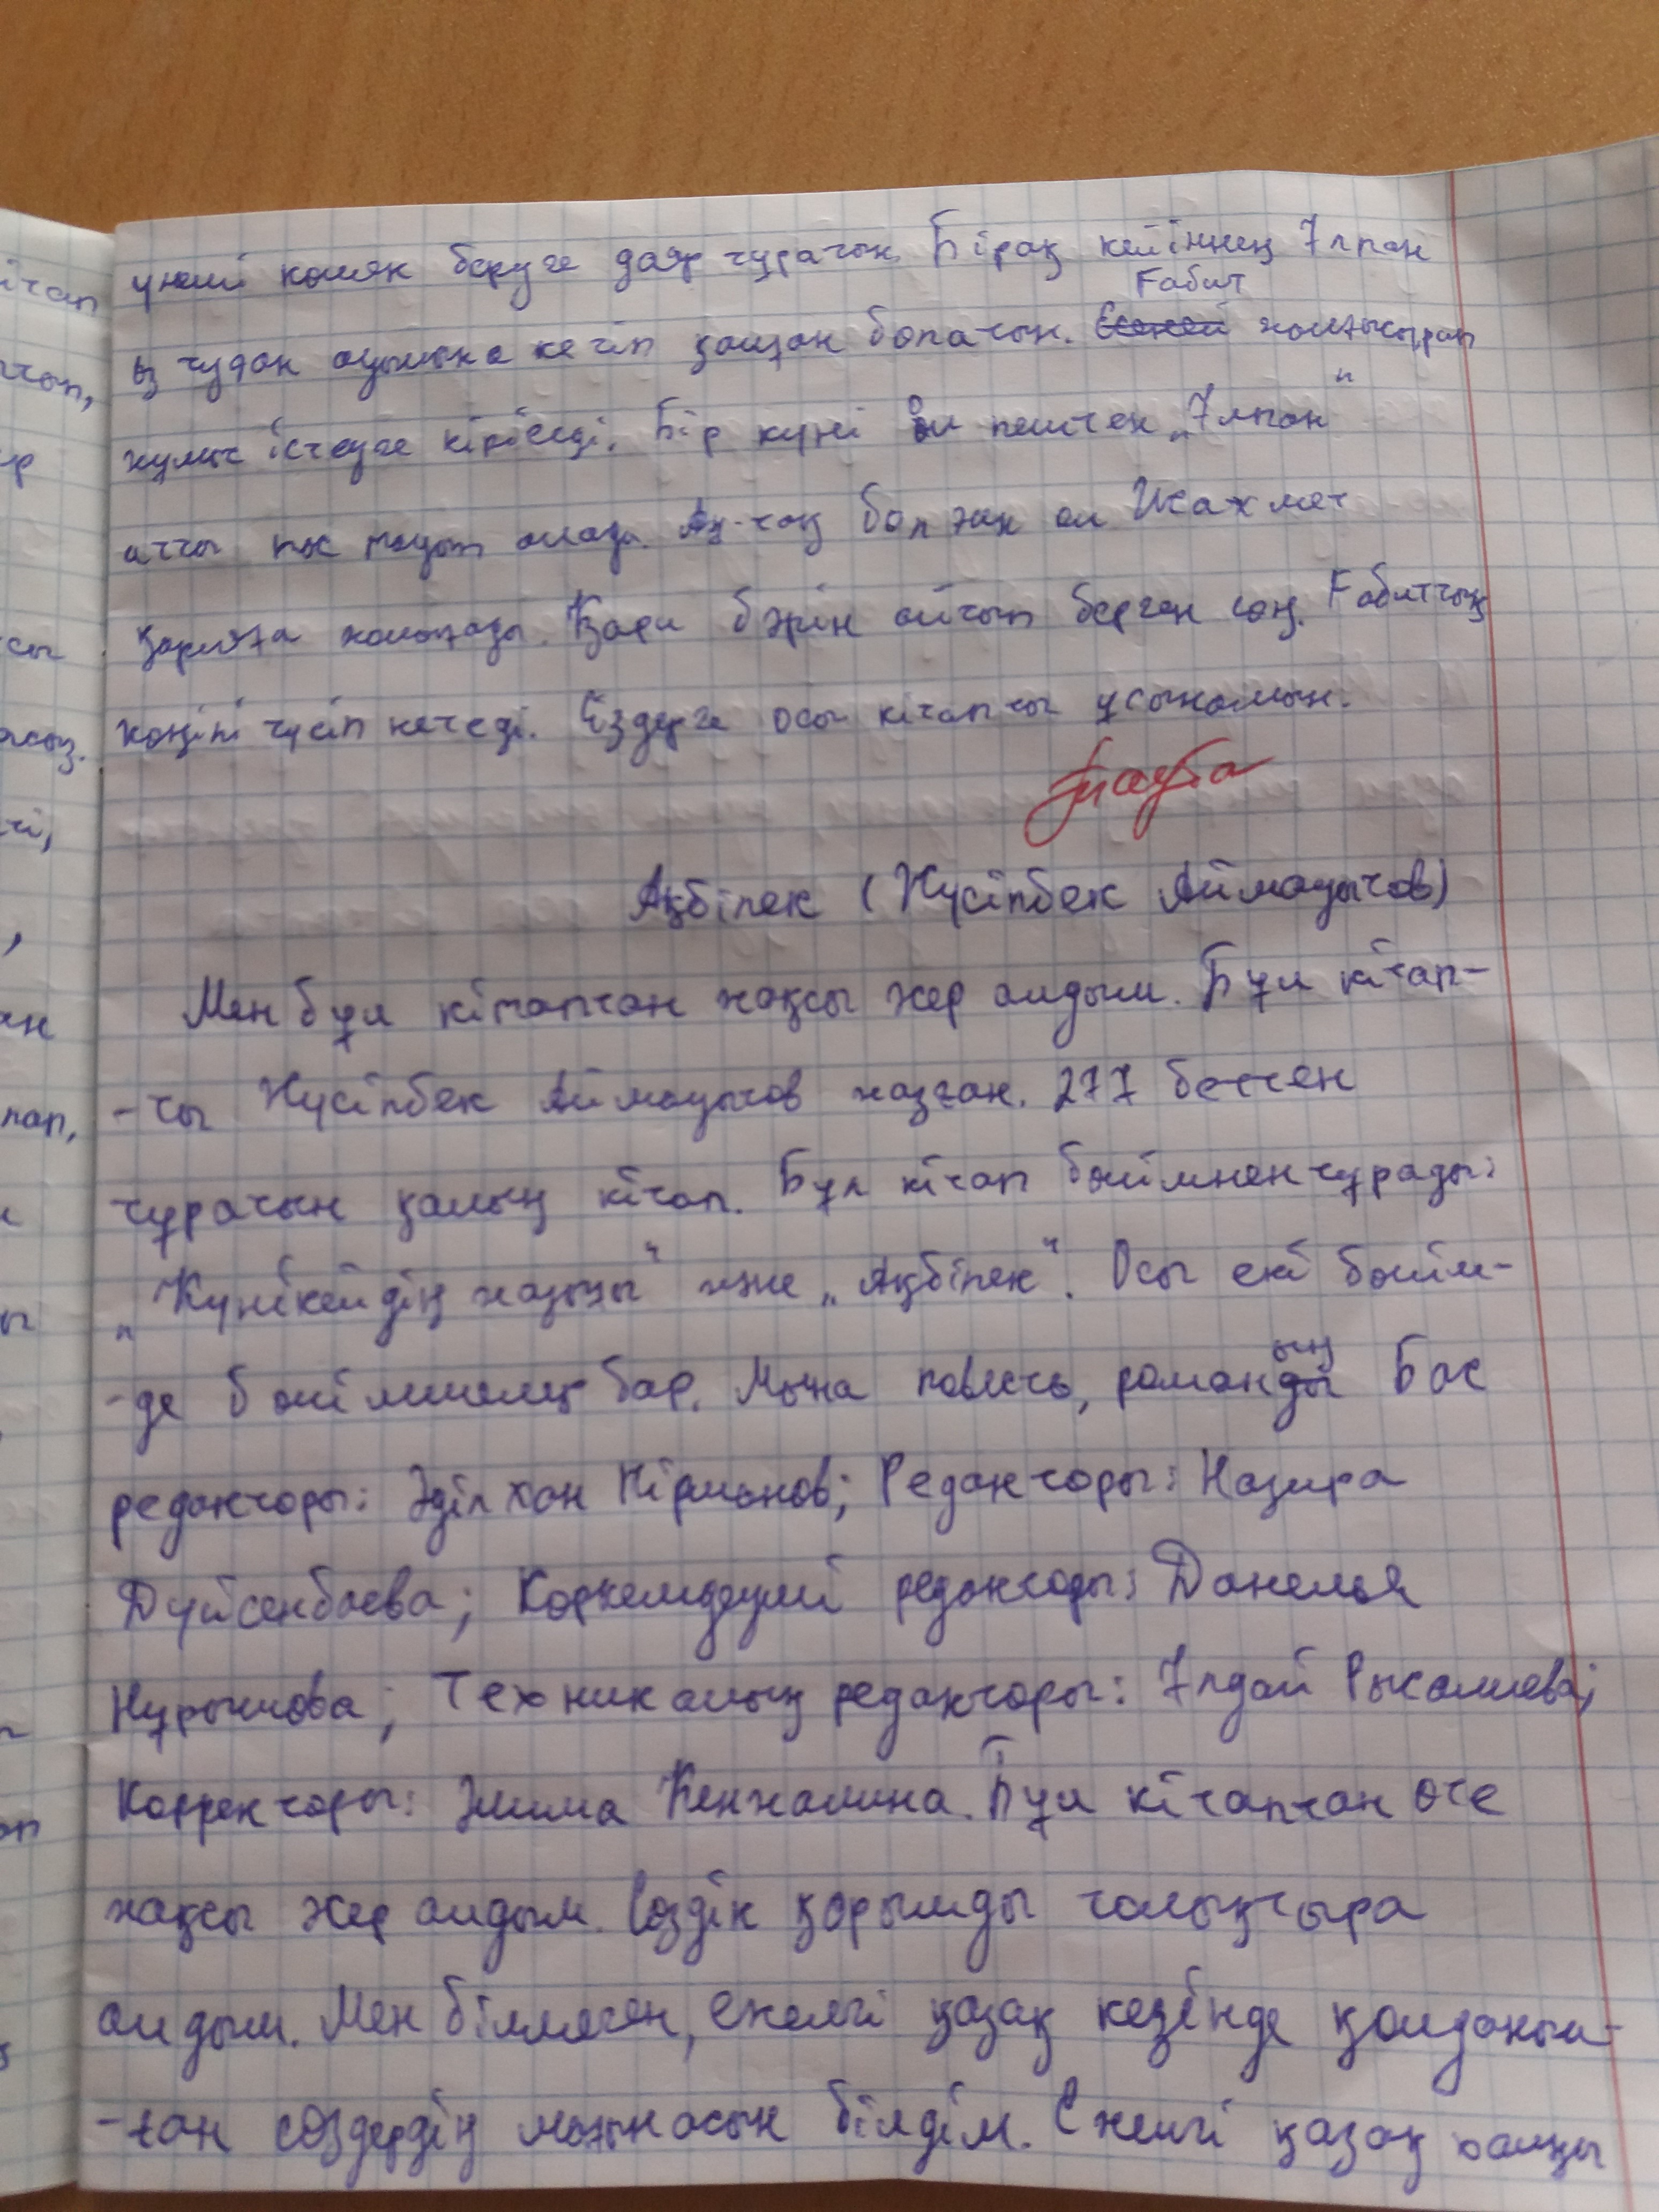 үнемі көмек беруге даяр тұратын. Бірақ кейіннен Ұлпан
Ғабит
өз туған ауылына кетіп қалған болатын. Есеней жалғызсырап
жұмыс істеуге кіріседі. Бір күні ол пештен „Ұлпан"
атты тауып алады. Аң-таң болған ол Шахмет
қарияға жолығады. Қария бәрін айтып берген соң, Ғабиттың
көңілі түсіп кетеді. Сіздерге осы кітапты ұсынамын.
Ақбілек (Жүсіпбек Аймауытов)
Мен бұл кітаптан жақсы әсер алдым. Бұл кітап-
-ты Жүсіпбек Аймауытов жазған. 277 беттен
тұратын қалың кітап. Бұл кітап бөлімнен тұрады:
„Күнікейдің жазығы" және „Ақбілек". Осы екі бөлім-
ың
-де бөлімшелер бар. Мына повесть, романды Бас
редакторы: Әділхан Пірманов; Редакторы: Назира
Дүйсенбаева; Көркемдеуші редакторы: Данелья
Нұрышова; Техникалық редакторы: Ұлдай Рысалиева;
Корректоры: Әлима Кенжалина. Бұл кітаптан өте
жақсы әсер алдым. Сөздік қорымды толықтыра
алдым. Мен білмеген, ежелгі қазақ кезінде қолданыл-
-ған сөздердің мағынасын білдім. Ежелгі қазақ халқы